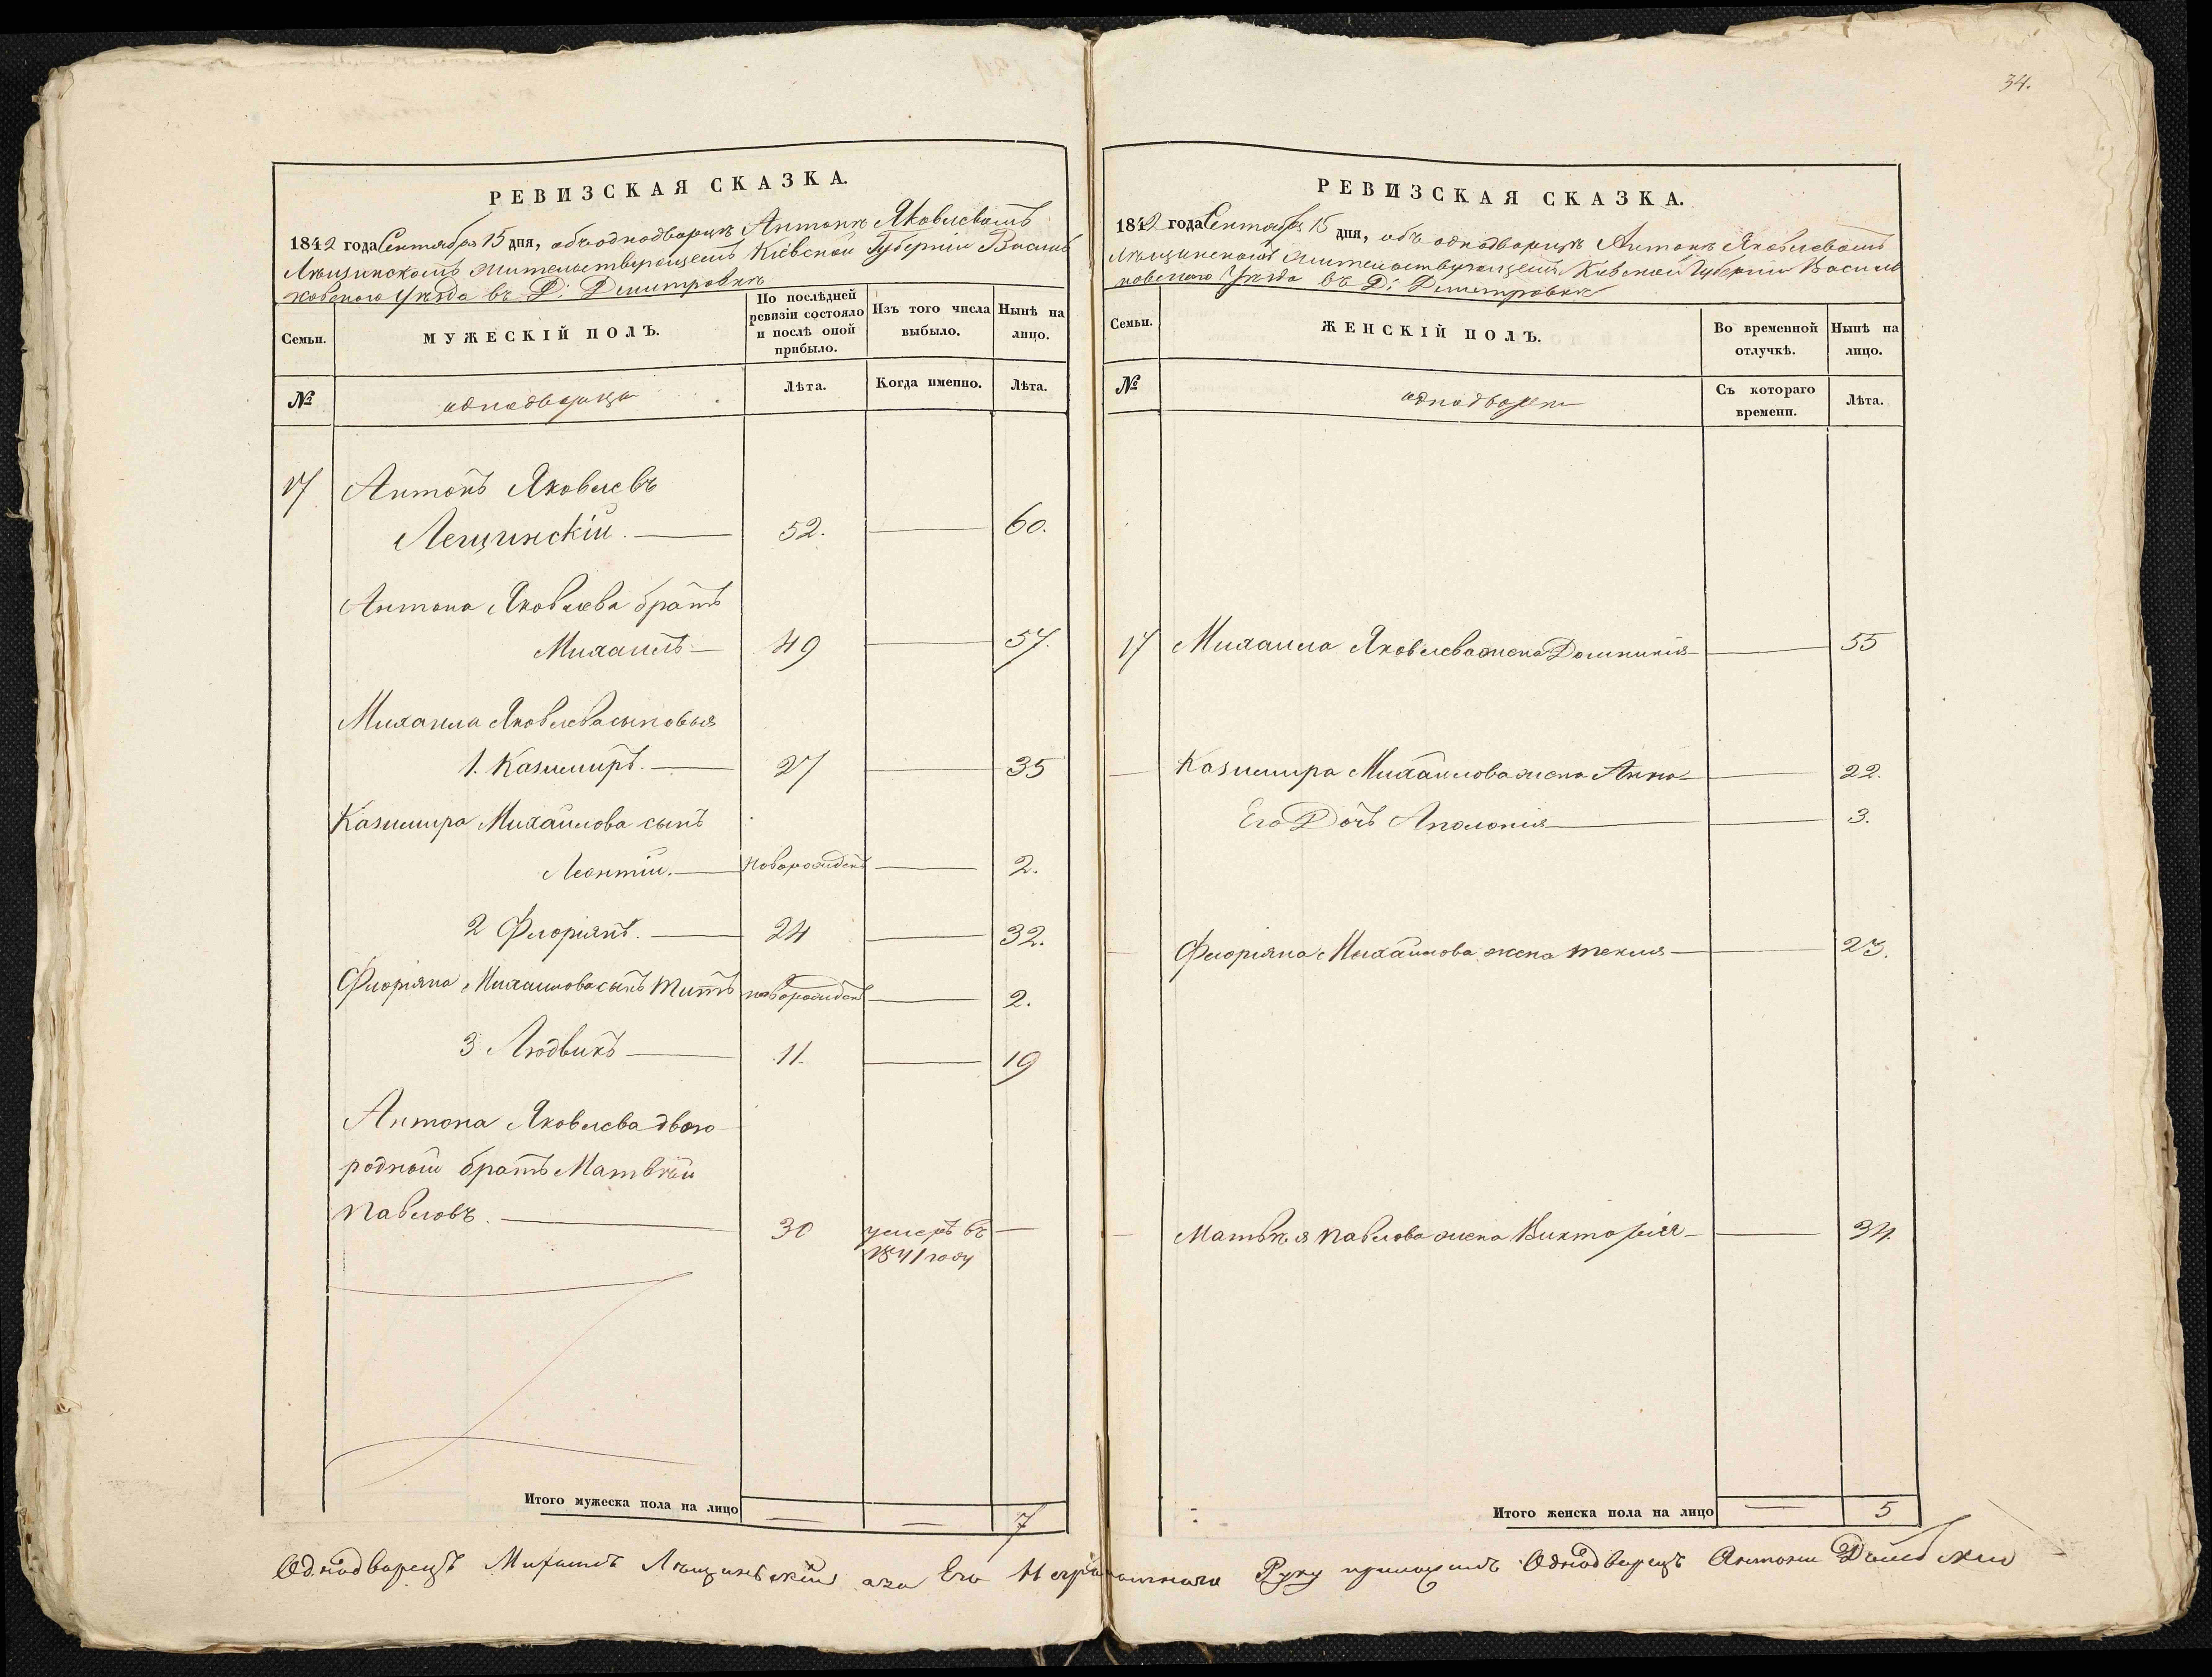 34.
РЕВИЗСКАЯ СКАЗКА.
1842 года Сентября 15 дня, объ однодворцѣ Антонѣ Яковлевомъ
Лѣщинскомъ жительствующемъ Кіевской Губерніи Василь
ковского Уѣзда въ Д: Дмитровкѣ
Семьи.
МУЖЕСКІЙ ПОЛЪ.
По послѣдней ревизіи состояло и послѣ оной прибыло.
Изъ того числа выбыло.
Нынѣ на лицо.
№
однодворцы
Лѣта.
Когда именно.
Лѣта.
17 Антонъ Яковлевъ
Лещинскій. 52. 60.
Антона Яковлева братъ
Михаилъ 49 57.
Михаила Яковлева сыновья
1. Казимиръ. 27 35
Казимира Михайлова сынъ
Леонтій. новорожденъ 2.
2 Флоріянъ. 24 32.
Флоріяна Михаилова сынъ Титъ новорожденъ 2.
3 Людвикъ 11. 19
Антона Яковлева двою
родной братъ Матвѣй
Павловъ. 30 умеръ въ
1841 году
Итого мужеска пола на лицо 7
РЕВИЗСКАЯ СКАЗКА.
1842 года Сентября 15 дня, объ однодворцѣ Антонѣ Яковлевомъ
Лѣщинскомъ жительствующемъ Кіевской Губерніи Василь
ковского Уѣзда въ Д: Дмитровкѣ
Семьи.
ЖЕНСКІЙ ПОЛЪ.
Во временной отлучкѣ.
Нынѣ на лицо.
№
однодворки
Съ котораго времени.
Лѣта.
17 Михаила Яковлева жена Домникія 55
Казимира Михайлова жена Анна 22.
Его Дочь Аполонія 3.
Флоріяна Михайлова жена Текля 23.
Матвѣя Павлова жена Викторія 34.
Итого женска пола на лицо 5
Однодворецъ Михаилъ Лѣщинскій аза Его Неграмотнаго Руку приложилъ Однодворецъ Антони